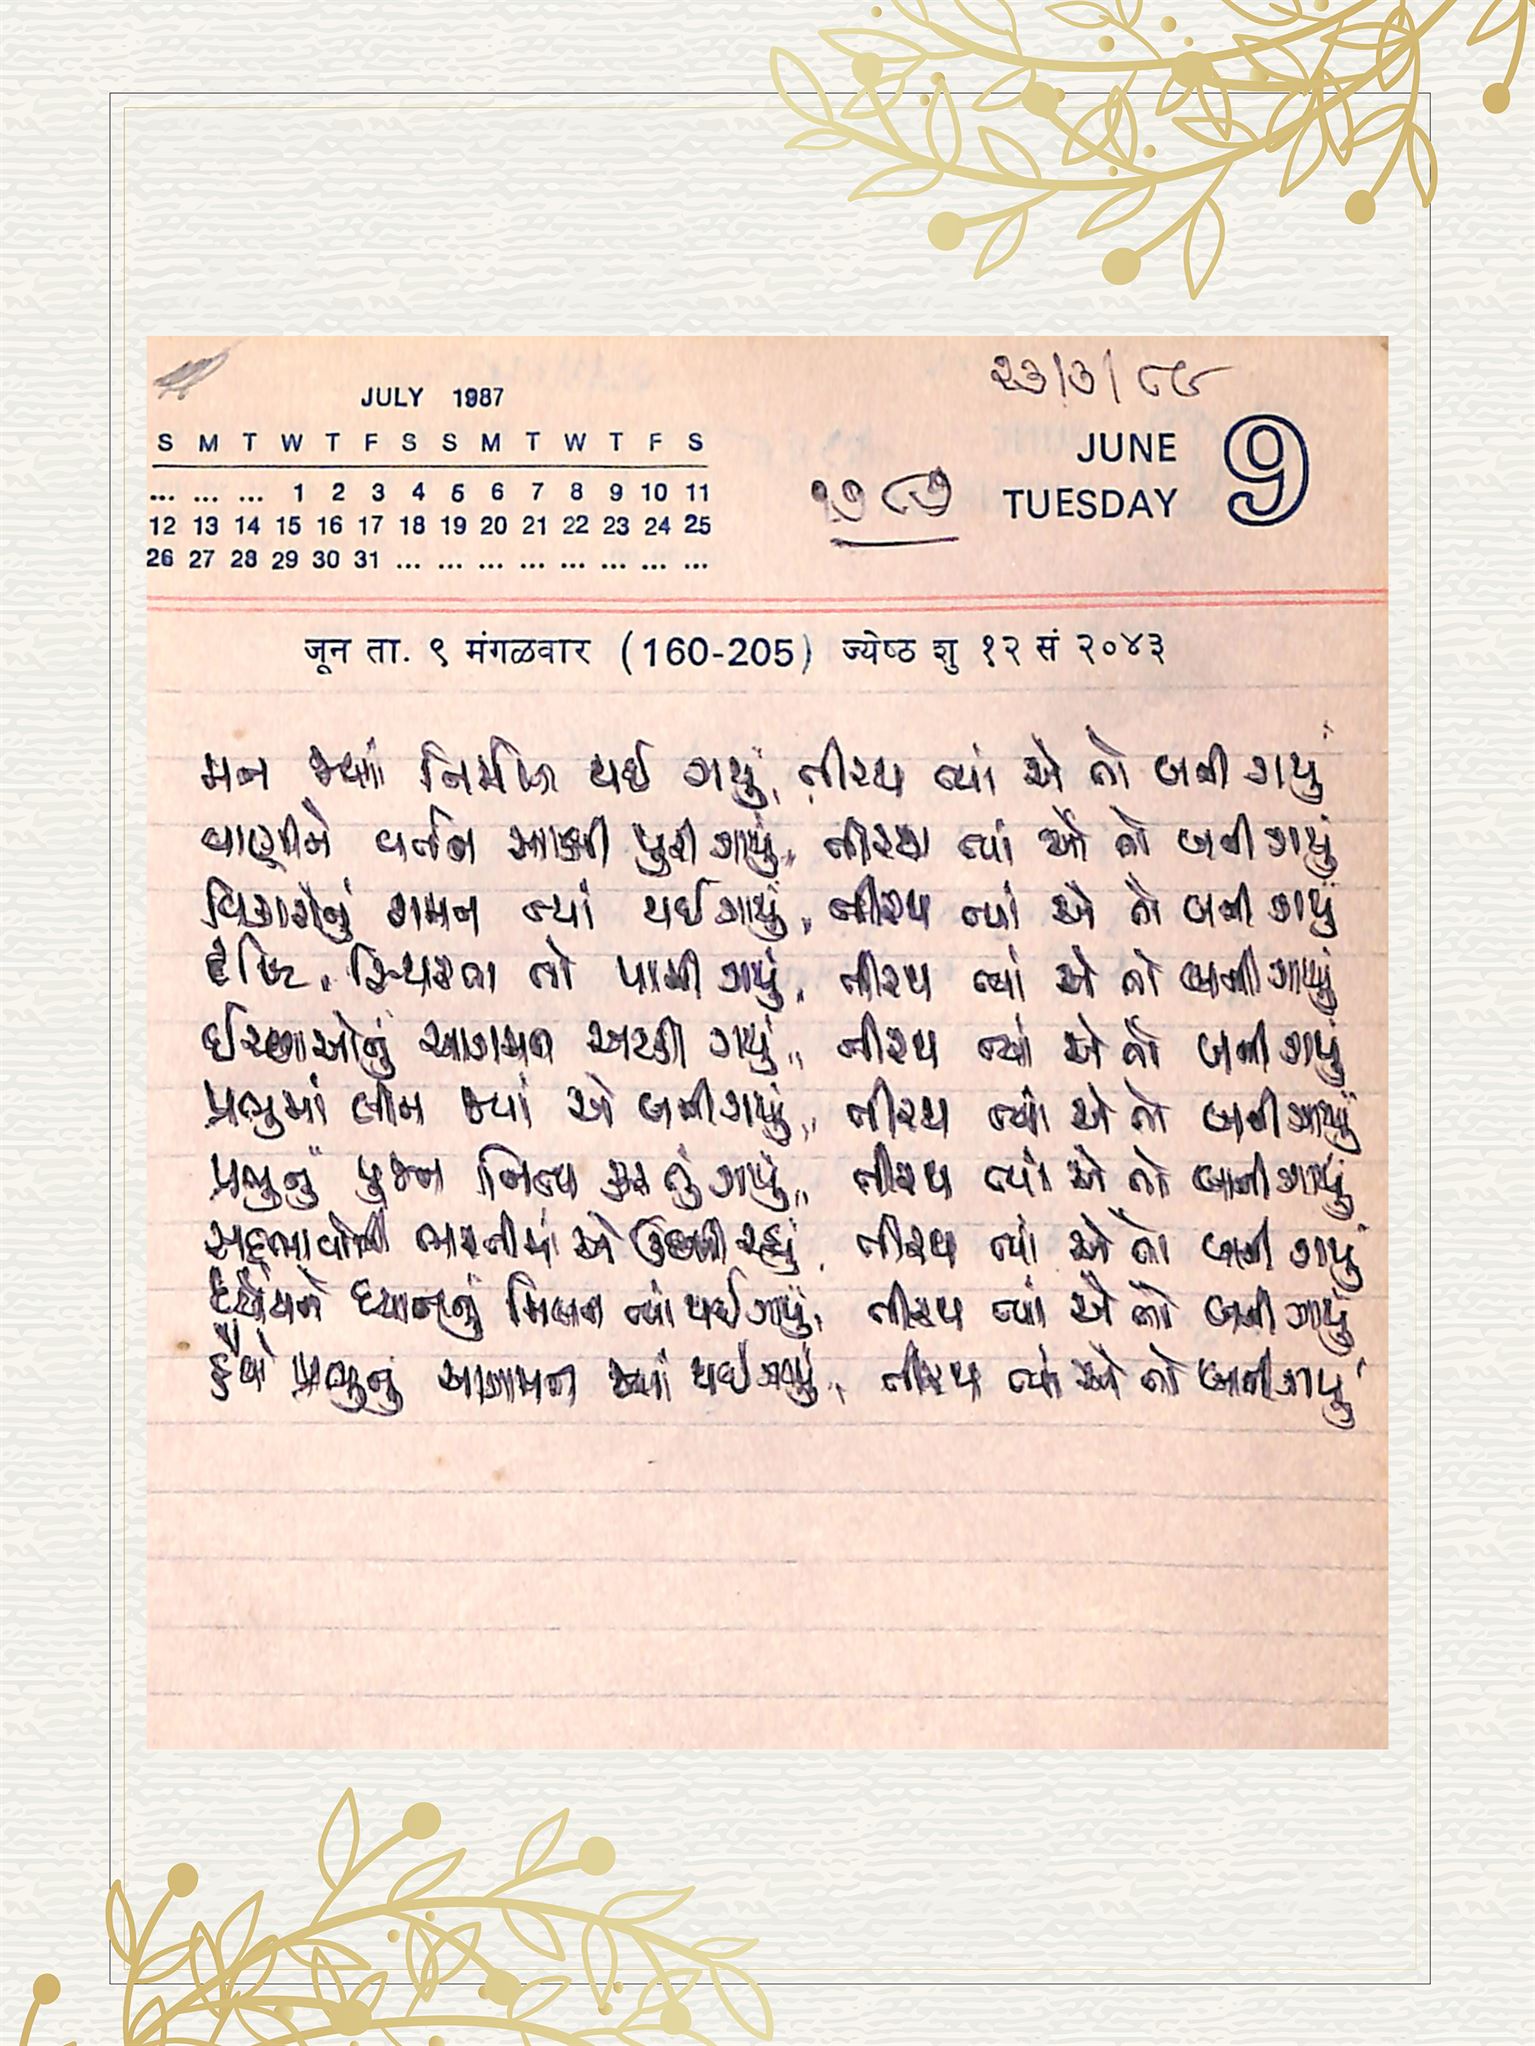 ૨૩/૩/૮૯
JULY 1987
S M T W T F S S M T W T F S
... ... ... 1 2 3 4 5 6 7 8 9 10 11
12 13 14 15 16 17 18 19 20 21 22 23 24 25
26 27 28 29 30 31 ... ... ... ... ... ... ... ...
૧૭૮૭
JUNE 9
TUESDAY
जून ता. ९ मंगळवार (160-205) ज्येष्ठ शु १२ सं २०४३
મન જ્યાં નિર્મળ થઈ ગયું, તીરથ ત્યાં એ તો બની ગયું
વાણીને વર્તન સાક્ષી પુરી ગયું, તીરથ ત્યાં એ તો બની ગયું
વિકારોનું ગમન ત્યાં થઈ ગયું, તીરથ ત્યાં એ તો બની ગયું
દૃષ્ટિ સ્થિરતા તો પામી ગયું, તીરથ ત્યાં એ તો બની ગયું
ઈચ્છાઓનું આગમન અટકી ગયું, તીરથ ત્યાં એ તો બની ગયું
પ્રભુમાં લીન જ્યાં એ બની ગયું, તીરથ ત્યાં એ તો બની ગયું
પ્રભુનું પુજન નિત્ય કરતું ગયું, તીરથ ત્યાં એ તો બની ગયું
સદ્દભાવોની ભરતીમાં એ ઉછળી રહ્યું, તીરથ ત્યાં એ તો બની ગયું
ધ્યેયને ધ્યાનનું મિલન ત્યાં થઈ ગયું, તીરથ ત્યાં એ તો બની ગયું
હૈયે પ્રભુનું આગમન જ્યાં થઈ ગયું, તીરથ ત્યાં એ તો બની ગયું